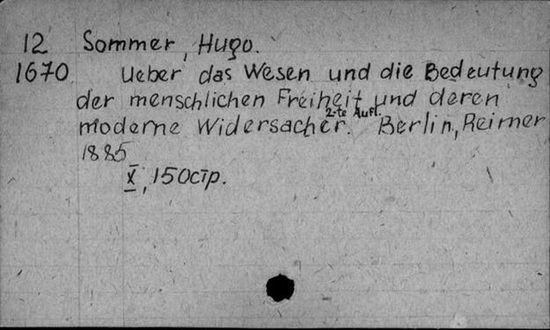 12 Sommer, Hugo.
1670 Ueber das Wesen und die Bedeutung
der menschlichen Freiheit und deren
moderne Widersacher. 2-te Aufl. Berlin, Reimer
1885
X, 150стр.